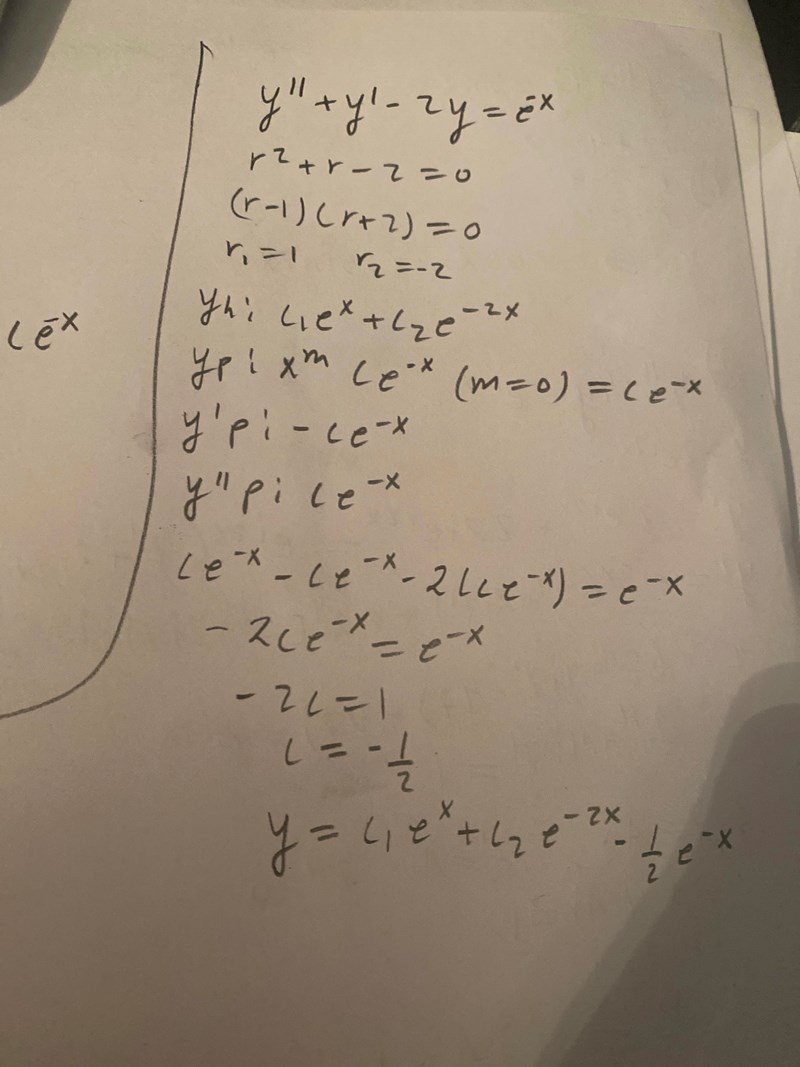 y'' + y' - 2y = e^-x
r² + r - 2 = 0
(r-1)(r+2) = 0
r₁ = 1 r₂ = -2
yh: c₁e^x + c₂e^-2x
yp: x^m ce^-x (m=0) = ce^-x
y'p: -ce^-x
y''p: ce^-x
ce^-x - ce^-x - 2(ce^-x) = e^-x
-2ce^-x = e^-x
-2c = 1
c = -1/2
y = c₁e^x + c₂e^-2x - 1/2 e^-x
ce^-x